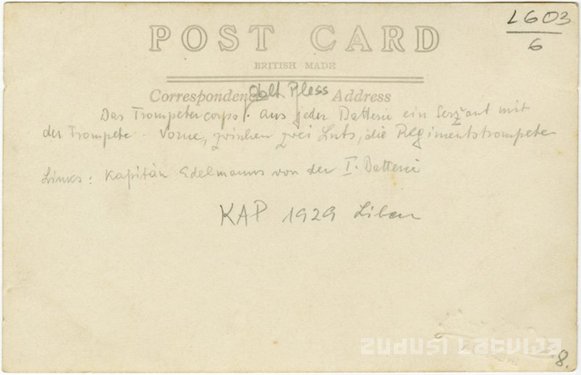 LG03
6
POST CARD
BRITISH MADE
Oblt Pless
Correspondence Address
Das Trompetercorps. aus jeder Batterie ein Sergant mit
der Trompete. Vorne, zwischen zwei Luts, die Regimentstrompete
Links: Kapitän Edelmanns von der I. Batterie
KAP 1929 Libau
zudusi latvija
8.